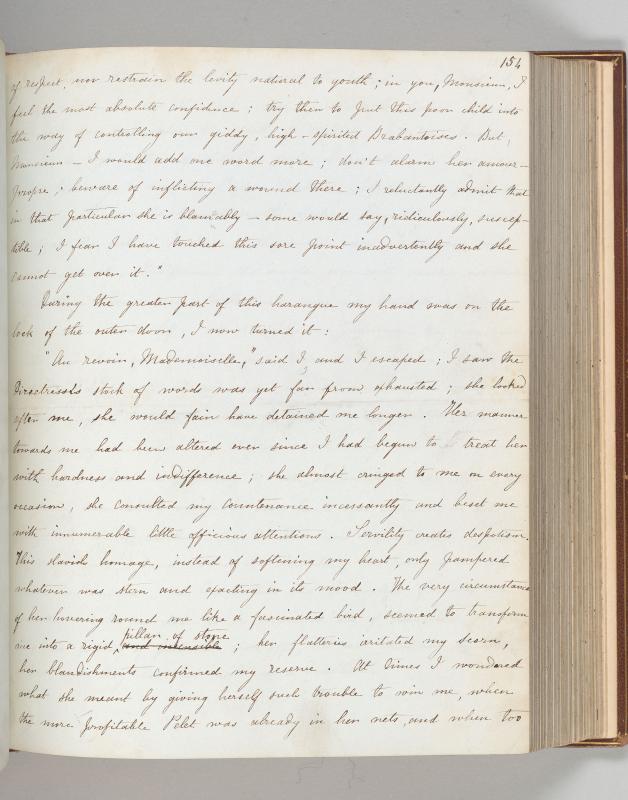 154
of respect, nor restrain the levity natural to youth; in you, Monsieur, I
feel the most absolute confidence; try then to put this poor child into
the way of controlling our giddy, high-spirited Brabantoises. But,
Monsieur – I would add one word more; don't alarm her amour-
propre; beware of inflicting a wound there; I reluctantly admit that
in that particular she is blameably – some would say, ridiculously, suscep-
tible; I fear I have touched this sore point inadvertently and she
cannot get over it."
During the greater part of this harangue my hand was on the
lock of the outer door, I now turned it:
"Au revoir, Mademoiselle," said I, and I escaped; I saw the
Directress's stock of words was yet far from exhausted; she looked
after me, she would fain have detained me longer. Her manner
towards me had been altered ever since I had begun to treat her
with hardness and indifference; she almost cringed to me on every
occasion, she consulted my countenance incessantly and beset me
with innumerable little officious attentions. Servility creates despotism.
This slavish homage, instead of softening my heart, only pampered
whatever was stern and exacting in its mood. The very circumstance
of her hovering round me like a fascinated bird, seemed to transform
pillar of stone
me into a rigid, and insensible; her flatteries irritated my scorn,
her blandishments confirmed my reserve. At times I wondered
what she meant by giving herself such trouble to win me, when
the more profitable Pelet was already in her nets, and when too